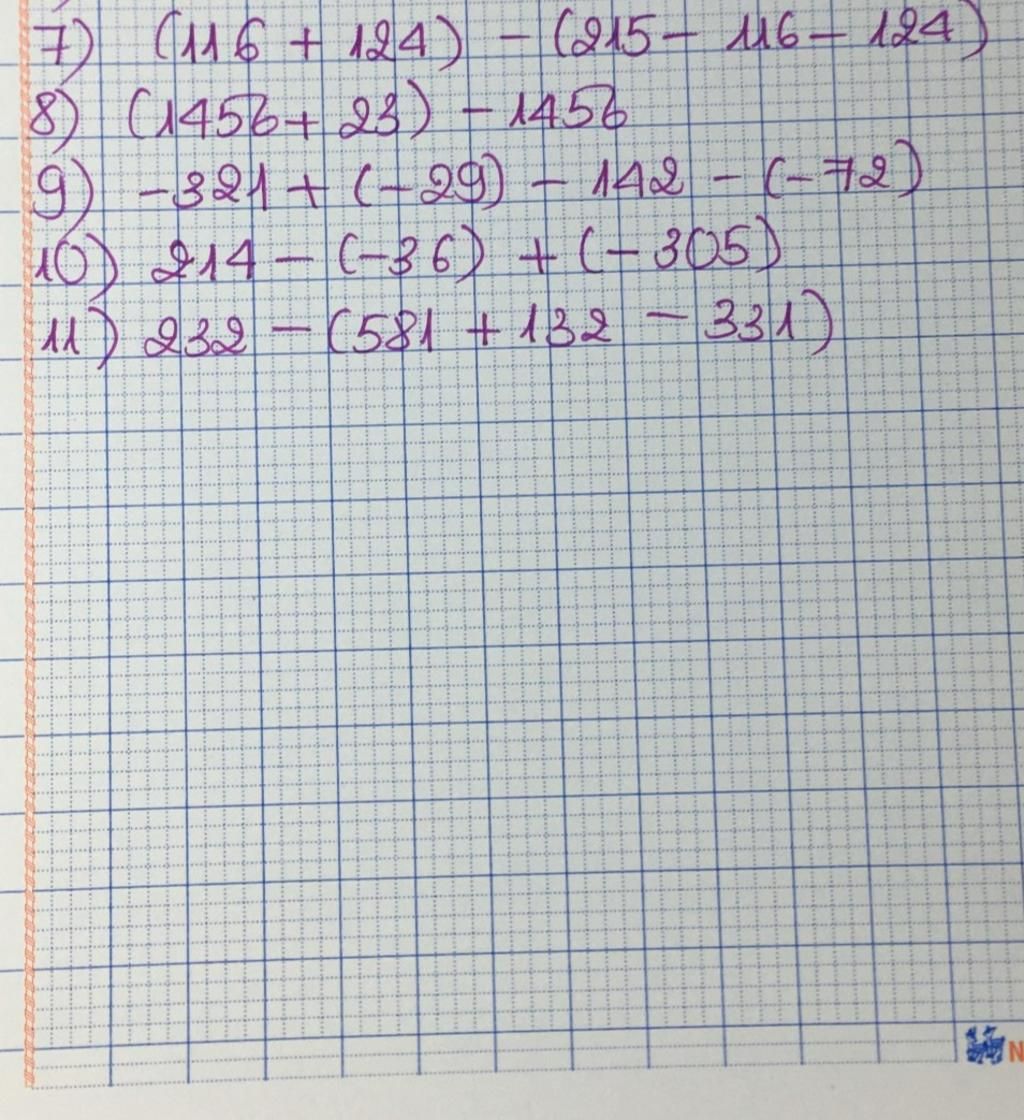 7) (116 + 124) - (215 - 116 - 124)
8) (1456 + 23) - 1456
9) -321 + (-29) - 142 - (-72)
10) 214 - (-36) + (-305)
11) 232 - (581 + 132 - 331)
N